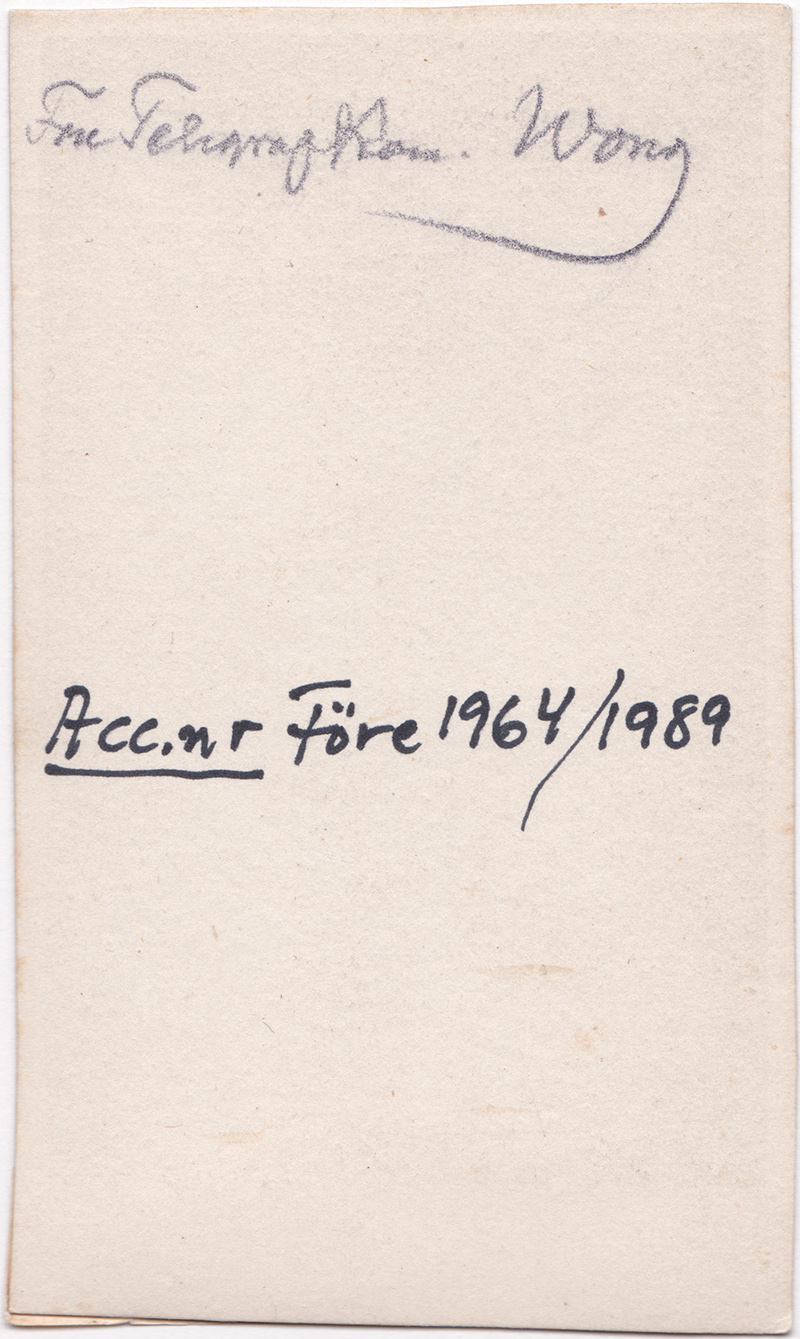 Fru Telegrafkom. Wong
Acc.nr Före 1964/1989